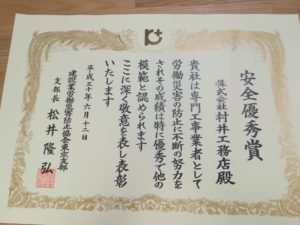 安全優秀賞
株式会社村井工務店殿
貴社は専門工事業者として
労働災害の防止に不断の努力を
されその成績は特に優秀で他の
模範と認められます
ここに深く敬意を表し表彰
いたします
平成三十年六月十二日
建設業労働災害防止協会東京支部
支部長 松井隆弘